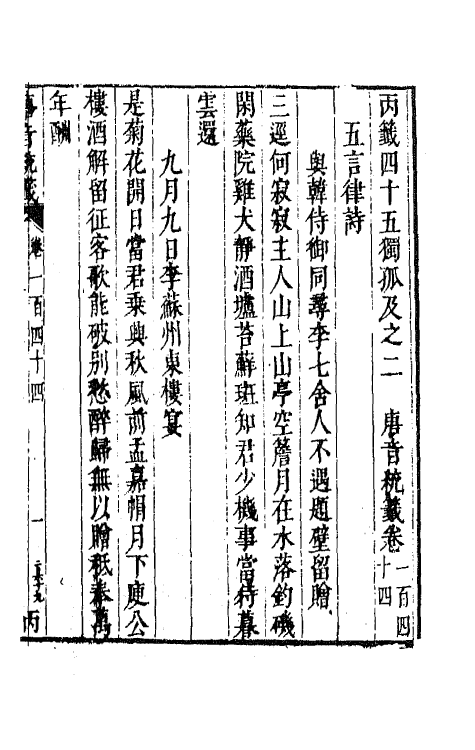 丙籤四十五獨孤及之二　唐音統籤卷一百四十四
五言律詩
與韓侍御同尋李七舍人不遇題壁留贈
三逕何寂寂主人山上山亭空簷月在水落釣磯
閑藥院雞犬靜酒壚苔蘚班知君少機事當待暮
雲還
九月九日李蘇州東樓宴
是菊花開日當君乗興秋風前孟嘉帽月下庾公
樓酒解留征客歌能破别愁醉歸無以贈秪奉萬
年酬
唐音統籤 卷一百四十四 一 丙